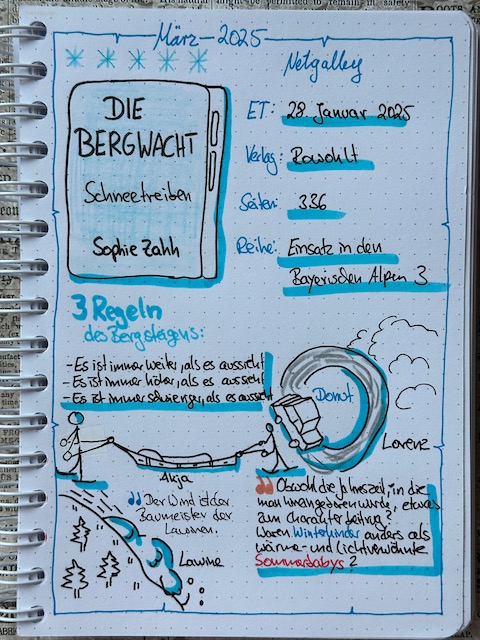 März-2025
Netgalley
DIE
BERGWACHT
Schneetreiben
Sophie Zahh
ET: 28. Januar 2025
Verlag: Rowohlt
Seiten: 336
Reihe: Einsatz in den
Bayerischen Alpen 3
3 Regeln
des Bergsteigens:
- Es ist immer weiter, als es aussieht
- Es ist immer höher, als es aussieht
- Es ist immer schwieriger, als es aussieht
Donut
Lorenz
Akja
"Der Wind ist der
Baumeister der
Lawinen.
Lawine
"Obwohl die Jahreszeit, in die
man hineingeboren wurde, etwas
zum Charakter beitrug?
Waren Winterkinder anders als
wärme- und lichtverwöhnte
Sommerbabys?